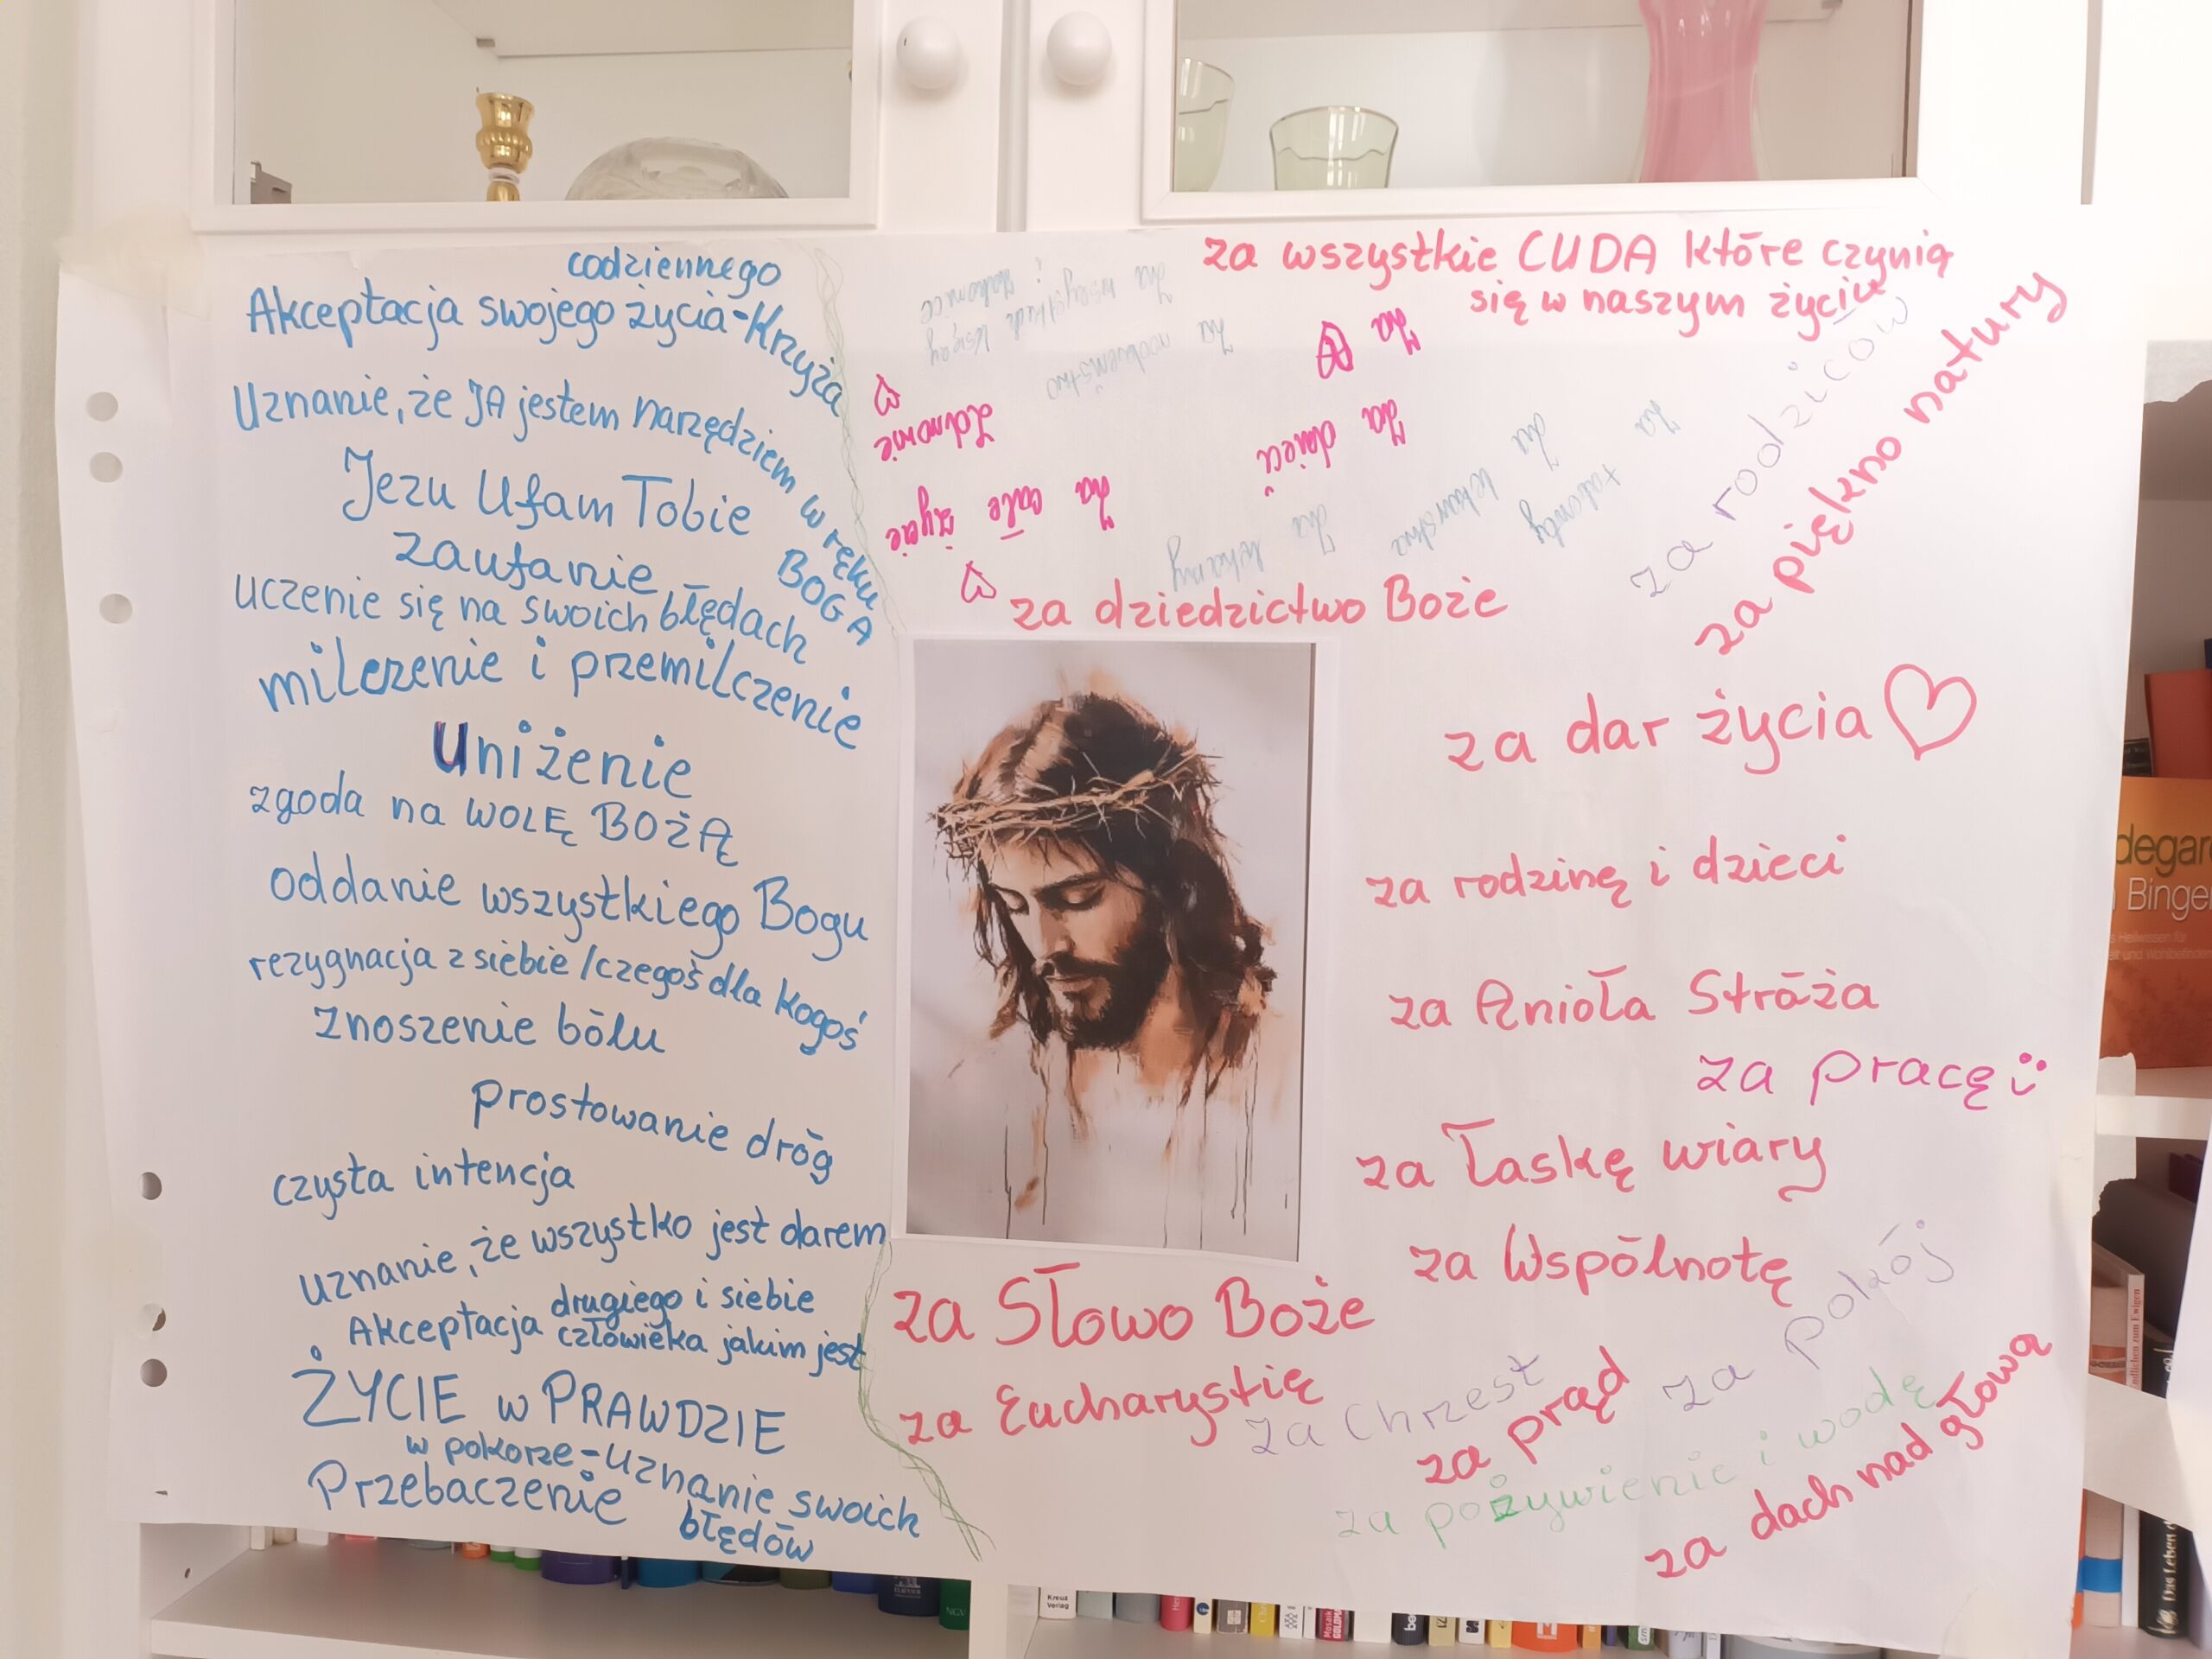 codziennego
Akceptacja swojego życia-Krzyża
Uznanie, że JA jestem narzędziem w ręku
BOGA
Jezu Ufam Tobie
zaufanie
uczenie się na swoich błędach
milczenie i przemilczenie
Uniżenie
zgoda na WOLĘ BOŻĄ
oddanie wszystkiego Bogu
rezygnacja z siebie/czegoś dla kogoś
znoszenie bólu
prostowanie dróg
czysta intencja
uznanie, że wszystko jest darem
Akceptacja drugiego i siebie
człowieka jakim jest
ŻYCIE w PRAWDZIE
w pokorze-uznanie swoich
błędów
Przebaczenie
za wszystkie CUDA które czynią
się w naszym życiu
za rodziców
za piękno natury
Za wszystkich księży
i zakonice
Za
Za
Zdrowie
Za dzieci
Za całe życie
Za
talenty
Za lekarstwa
Za lekarzy
za dziedzictwo Boże
za dar życia
za rodzinę i dzieci
za Anioła Stróża
za pracę
za łaskę wiary
za Wspólnotę
za Słowo Boże
za Eucharystię
za Chrzest
za prąd
za pokój
za pożywienie i wodę
za dach nad głową
degar
Binge
Kreuz
Verlag
NGV